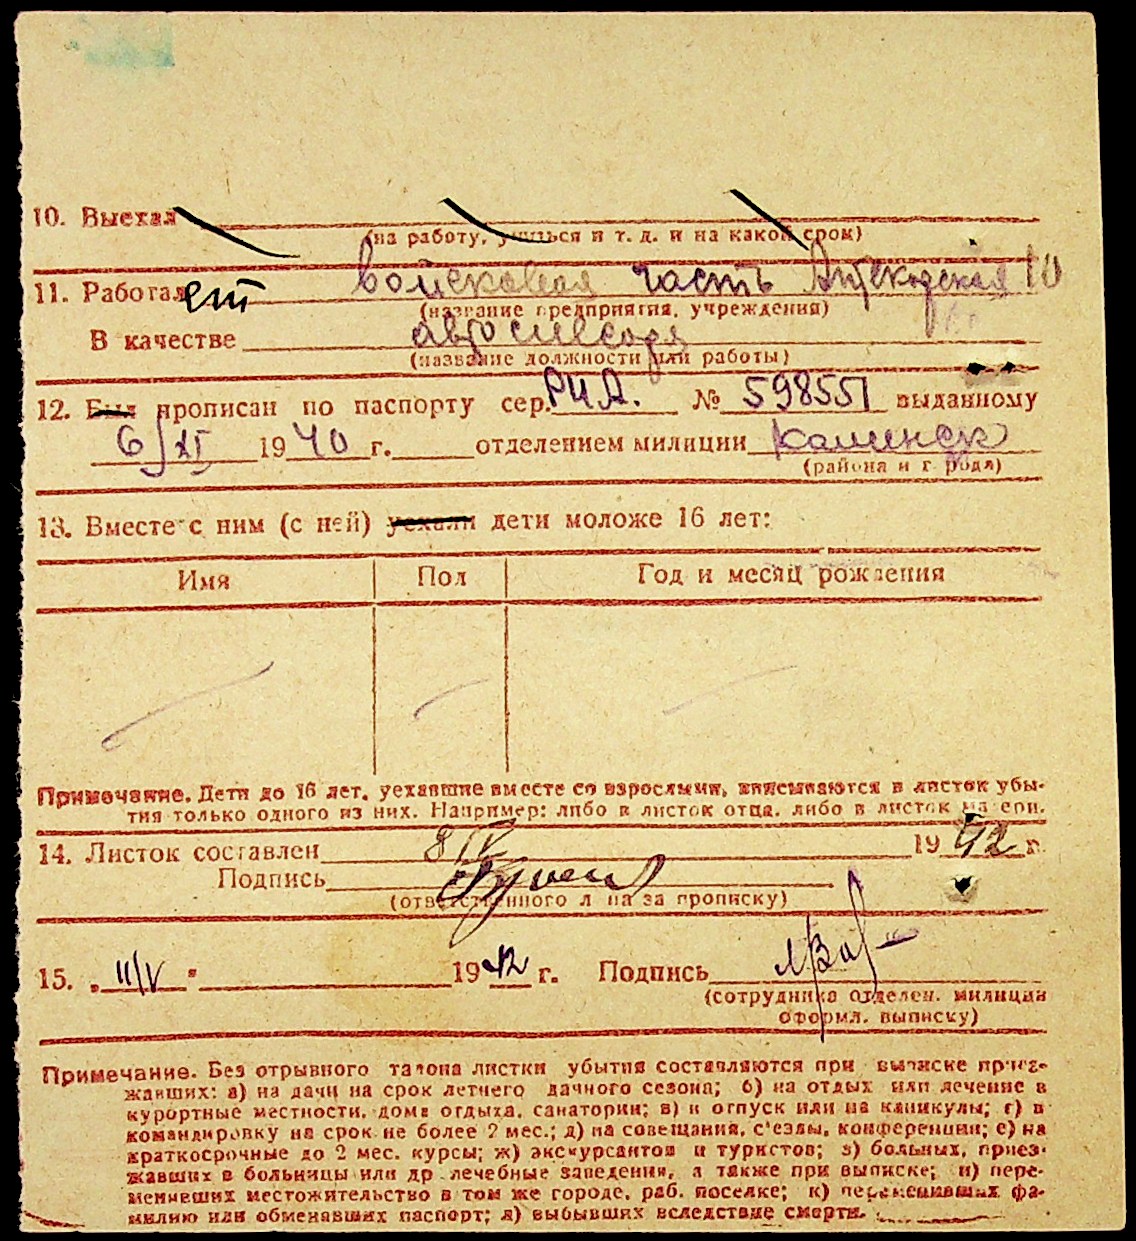 10. Выехал
(на работу, учиться и т. д. и на какой срок)
11. Работает войсковая часть 10
(название предприятия, учреждения)
В качестве автослесаря
(название должности или работы)
12. Был прописан по паспорту сер. РИА. № 598551 выданному
6/XI 1940 г. отделением милиции
(района и города)
13. Вместе с ним (с ней) уехали дети моложе 16 лет:
Имя Пол Год и месяц рождения
Примечание. Дети до 16 лет, уехавшие вместе со взрослыми, вписываются в листок убы-
тия только одного из них. Например: либо в листок отца, либо в листок матери.
14. Листок составлен 8/IV 1942 г.
Подпись
(ответственного лица за прописку)
15. „11/V" 1942 г. Подпись
(сотрудника отделен. милиции
оформл. выписку)
Примечание. Без отрывного талона листки убытия составляются при выписке приез-
жавших: а) на дачи на срок летнего дачного сезона; б) на отдых или лечение в
курортные местности, дома отдыха, санатории; в) в отпуск или на каникулы; г) в
командировку на срок не более 2 мес.; д) на совещания, с'езды, конференции; е) на
краткосрочные до 2 мес. курсы; ж) экскурсантов и туристов; з) больных, приез-
жавших в больницы или др. лечебные заведения, а также при выписке; и) пере-
менивших местожительство в том же городе, раб. поселке; к) переменивших фа-
милию или обменявших паспорт; л) выбывших вследствие смерти.